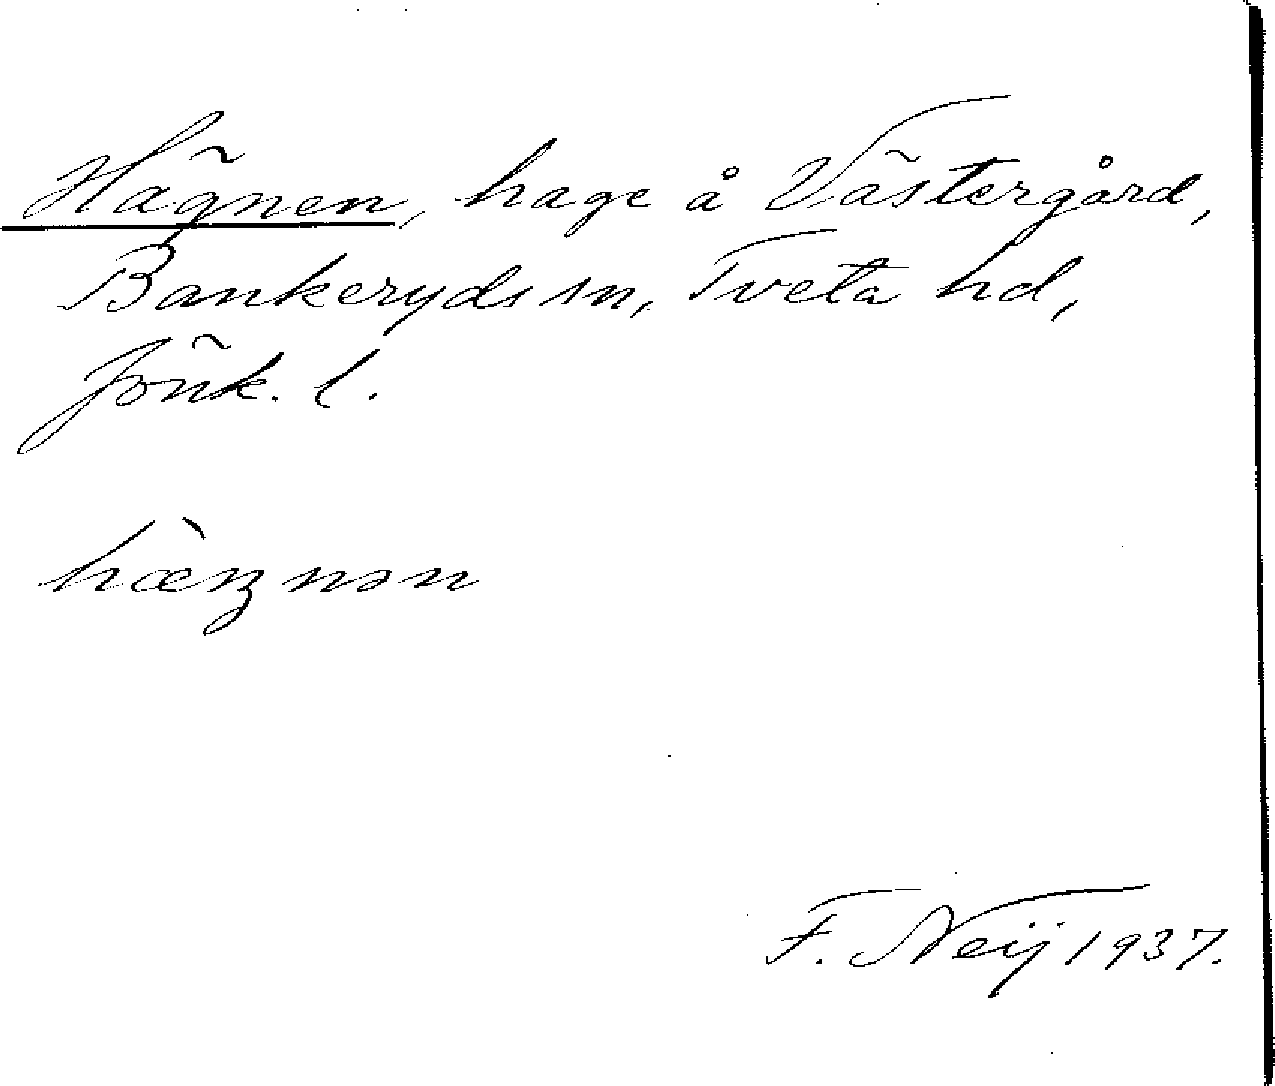 Hägnen, hage å Västergård,
Bankeryds sn, Tveta hd,
Jönk. l.
hæ̀ŋnən
F. Neij 1937.